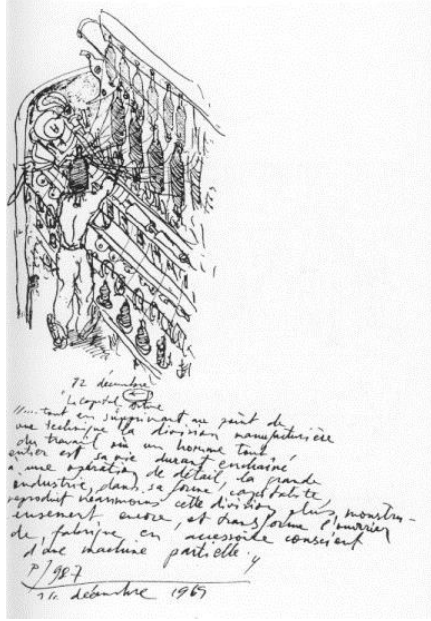 12 décembre
"Le capital,
"... tout en supprimant au point de
vue technique la division manufacturière
du travail où un homme tout
entier est sa vie durant enchaîné
à une opération de détail, la grande
industrie, dans sa forme capitaliste
reproduit néanmoins cette division plus monstru-
eusement encore, et transforme l'ouvrier
de fabrique en accessoire conscient
d'une machine partielle."
P/987
décembre 1969